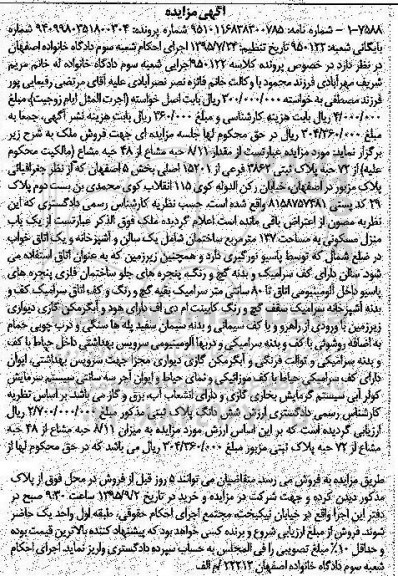 آگهی مزایده
۱-۷۵۸۸ - شماره نامه: ۹۵۱۰۱۱۶۸۳۸۳۰۰۷۸۵ شماره پرونده: ۹۴۰۹۹۸۰۳۵۱۸۰۰۳۰۴ شماره
بایگانی شعبه: ۹۵۰۱۲۲ تاریخ تنظیم: ۱۳۹۵/۷/۲۴ اجرای احکام شعبه سوم دادگاه خانواده اصفهان
در نظر دارد در خصوص پرونده کلاسه ۹۵۰۱۲۲ اجرایی شعبه سوم دادگاه خانواده له خانم مریم
شریف مهرآبادی فرزند محمود با وکالت خانم فائزه نصر نصرآبادی علیه آقای مرتضی رفیعایی پور
فرزند مصطفی به خواسته ۳۰۰/۰۰۰/۰۰۰ ریال بابت اصل خواسته (اجرت المثل ایام زوجیت) مبلغ
۴/۰۰۰/۰۰۰ ریال بابت هزینه کارشناسی و مبلغ ۳۶۰/۰۰۰ ریال بابت هزینه نشر آگهی، جمعا به
مبلغ ۳۰۴/۳۶۰/۰۰۰ ریال در حق محکوم لها جلسه مزایده ای جهت فروش ملک به شرح زیر
برگزار نماید: مورد مزایده عبارتست از مقدار ۸/۱۱ حبه مشاع از ۴۸ حبه مشاع (مالکیت محکوم
علیه) از ۷۲ حبه پلاک ثبتی ۳۸۶۲ فرعی از ۱۵۲۰۱ اصلی بخش ۵ اصفهان که از نظر جغرافیائی
پلاک مزبور در اصفهان، خیابان رکن الدوله کوی ۱۱۵ انقلاب کوی محمدی بن بست دوم پلاک
۲۹ کد پستی ۸۱۵۸۷۵۷۳۸۱ واقع شده است. حسب نظریه کارشناس رسمی دادگستری که این
نظریه مصون از اعتراض باقی مانده است اعلام گردیده ملک فوق الذکر عبارتست از یک باب
منزل مسکونی به مساحت ۱۳۷ مترمربع ساختمان شامل یک سالن و آشپزخانه و یک اتاق خواب
در ضلع شمال که توسط پاسیو نورگیری دارد و همچنین زیرزمین که به عنوان اتاق استفاده می
شود. سالن دارای کف سرامیک و بدنه گچ و رنگ، پنجره های جلو ساختمان فلزی پنجره های
پاسیو داخل آلومینیومی اتاق تا ۸۰ سانتی متر سرامیک بقیه گچ و رنگ و کف اتاق سرامیک کف و
بدنه آشپزخانه سرامیک سقف گچ و رنگ کابینت ام دی اف دارای هود و آبگرمکن گازی دیواری
زیرزمین با ورودی از راهرو و با کف سیمانی و بدنه سیمان سفید پله ها سنگی و درب چوبی حمام
به اضافه روشوئی با کف و بدنه سرامیکی و دربها آلومینیومی سرویس بهداشتی داخل حیاط با کف
و بدنه سرامیکی و توالت فرنگی و آبگرمکن گازی دیواری مجزا جهت سرویس بهداشتی، ایوان
دارای کف سرامیکی حیاط با کف موزائیکی و نمای حیاط و ایوان آجر سه سانتی سیستم سرمایش
کولر آبی سیستم گرمایش بخاری گازی و دارای انشعاب آب، برق و گاز می باشد. بر اساس نظریه
کارشناس رسمی دادگستری ارزش شش دانگ پلاک ثبتی مذکور مبلغ ۲/۷۰۰/۰۰۰/۰۰۰ ریال
ارزیابی گردیده است که بر این اساس ارزش مورد مزایده به میزان ۸/۱۱ حبه مشاع از ۴۸ حبه
مشاع از ۷۲ حبه پلاک ثبتی مزبور مبلغ ۳۰۴/۳۶۰/۰۰۰ ریال می باشد که در حق محکوم لها از
طریق مزایده به فروش می رسد. متقاضیان می توانند ۵ روز قبل از فروش در محل فوق از پلاک
مذکور دیدن کرده و جهت شرکت در مزایده و خرید در تاریخ ۱۳۹۵/۹/۲ ساعت ۹:۳۰ صبح در
دفتر این اجرا واقع در خیابان نیکبخت، مجتمع اجرای احکام حقوقی، طبقه اول واحد یک حاضر
شوند. فروش از مبلغ ارزیابی شروع و برنده کسی خواهد بود که پیشنهاد کننده بالاترین قیمت بوده
و حداقل ۱۰٪ مبلغ تصویبی را فی المجلس به حساب سپرده دادگستری واریز نماید. اجرای احکام
شعبه سوم دادگاه خانواده اصفهان ۲۲۲۱۳/م الف